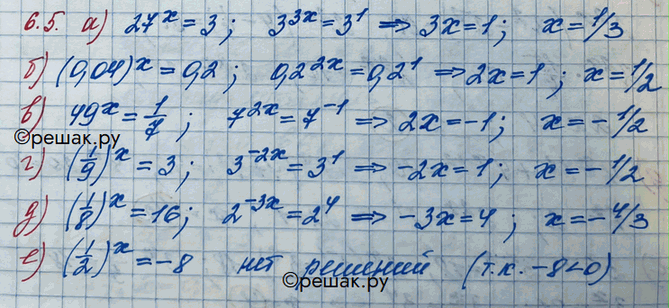 6.5. а) 27^x = 3; 3^3x = 3^1 ⇒ 3x = 1; x = 1/3
б) (0,04)^x = 0,2; 0,2^2x = 0,2^1 ⇒ 2x = 1; x = 1/2
в) 49^x = 1/7; 7^2x = 7^-1 ⇒ 2x = -1; x = -1/2
©решак.ру
г) (1/9)^x = 3; 3^-2x = 3^1 ⇒ -2x = 1; x = -1/2
д) (1/8)^x = 16; 2^-3x = 2^4 ⇒ -3x = 4; x = -4/3
е) (1/2)^x = -8 нет решений (т.к. -8<0)
©решак.ру